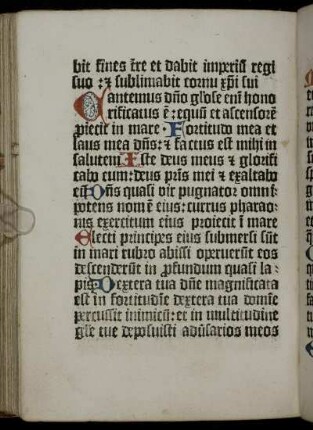 bit fines tr̄e et dabit imperiū regi
suo : ⁊ sublimabit cornu xp̄i sui
Cantemus dn̄o glo̅se eni̅ hono
rificatus ē : equū et ascensorē
ꝓiecit in mare · Fortitudo mea et
laus mea dn̄s : ⁊ factus est mihi in
salutem Iste deus meus ⁊ glorifi
cabo eum : deus pr̄is mei ⁊ exaltabo
eū Dn̄s quasi vir pugnator omni
potens nomē eius : currus pharao-
nis exercitum eius proiecit ī mare
Electi principes eius submersi sūt
in mari rubro abissi operuerūt eos
descenderūt in ꝓfundum quasi la-
pis Dextera tua dn̄e magnificata
est in fortitudīe dextera tua domīe
percussit inimicū : et in multitudine
gl̄e tue deposuisti adūsarios meos